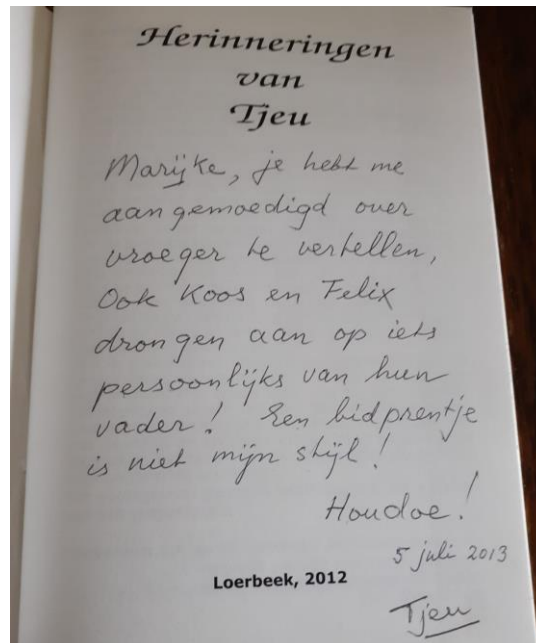 Herinneringen
van
Tjeu
Marijke, je hebt me
aangemoedigd over
vroeger te vertellen,
Ook Koos en Felix
drongen aan op iets
persoonlijks van hun
vader! Een bidprentje
is niet mijn stijl!
Houdoe!
5 juli 2013
Loerbeek, 2012
Tjeu